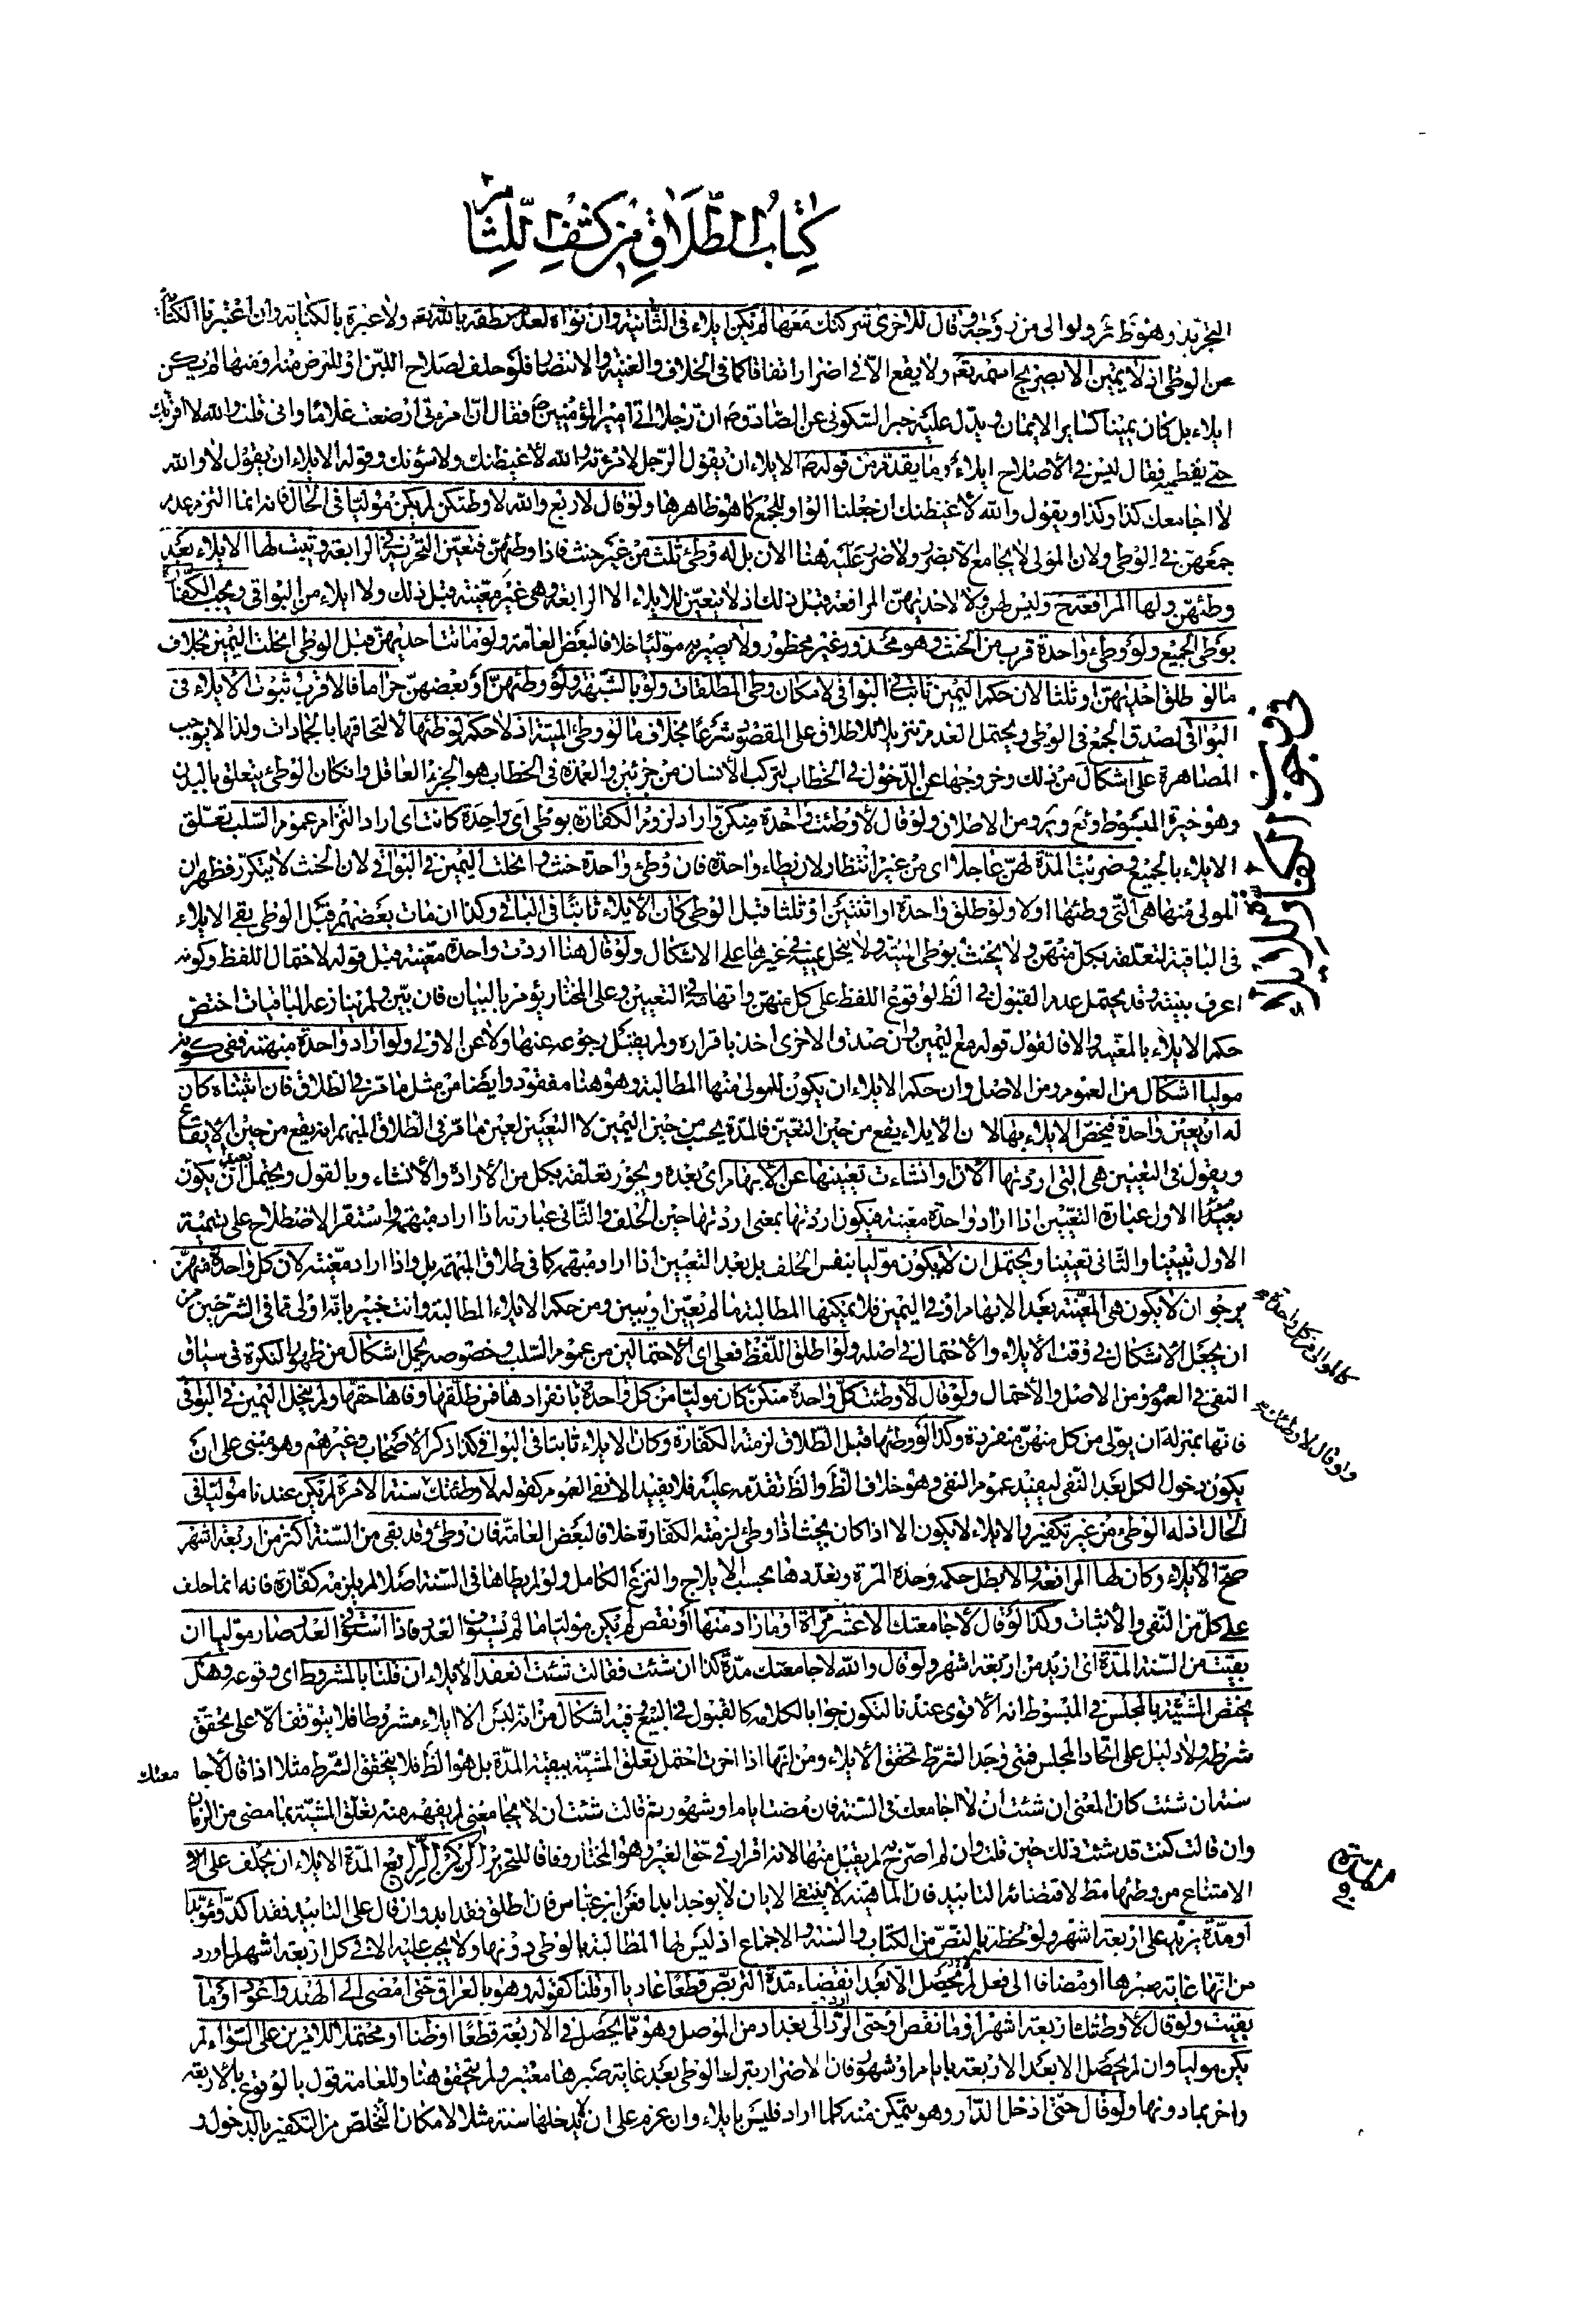 كتاب الطلاق من كشف اللثام
التحرير وهو ظ ولو الى من زوجة وقال للاخرى شركتك معها لم يكن ايلاء فى الثانية وان نواه لعدم نطقه بالله تعم ولا عبرة بالكناية وان اعتبرنا الكناية
عن الوطى اذ لا يمين الا بصريح اسمه تعم ولا يقع الا فى اضرار اتفاقا كما فى الخلاف والغنية والانتصار فلو حلف لصلاح اللبن او للمرض منه او منها لم يكن
ايلاء بل كان يمينا كساير الايمان ويدل عليه خبر السكونى عن الصادق ع ان رجلا اتى امير المؤمنين ع فقال ان امرءتى ارضعت غلاما وانى قلت والله لا اقربك
حتى تفطميه فقال ليس فى الاصلاح ايلاء وما يقدم من قوله ع الايلاء ان يقول الرجل لامرءته والله لاغيظنك ولاسؤنك وقوله الايلاء ان يقول لا والله
لا اجامعك كذا وكذا ويقول والله لاغيظنك ان جعلنا الواو للجمع كما هو ظاهرها ولو قال لاربع والله لا وطئتكن لم يكن موليا فى الحال فانه انما التزم عدم
جمعهن فى الوطى ولان المولى لا يجامع الا بضرر ولا ضرر عليه هنا الان بل له وطئ ثلث من غير حنث فاذا وطئهن فتعين التحريم فى الرابعة ويثبت لها الايلاء بعد
وطئهن ولها المرافعة ح وليس لهن ولا لاحديهن المرافعة قبل ذلك اذ لا يتعين للايلاء الا الرابعة وهى غير معينة قبل ذلك ولا ايلاء من البواقى ويجب الكفارة
بوطى الجميع ولو وطئ واحدة قرب من الحنث وهو محذور غير محظور ولا يصير به موليا خلافا لبعض العامة ولو ماتت احديهن قبل الوطى انحلت اليمين بخلاف
ما لو طلق احديهن او ثلثا لان حكم اليمين ثابت فى البواقى لامكان وطى المطلقات ولو بالشبهة ولو وطئهن او بعضهن حراما فالاقرب ثبوت الايلاء فى
البواقى لصدق الجمع فى الوطى ويحتمل العدم تنزيلا للاطلاق على المقصود شرعا بخلاف ما لو وطئ الميتة اذ لا حكم لوطئها لالتحاقها بالجمادات ولذا لا يوجب
المصاهرة على اشكال من ذلك وخروجها عن الدخول فى الخطاب لتركب الانسان من جزئين والعمدة فى الخطاب هو الجزء العاقل وان كان الوطئ يتعلق بالبدن
وهو خيرة المبسوط وئع وير ومن الاطلاق ولو قال لا وطئت واحدة منكن واراد لزوم الكفارة بوطى اى واحدة كانت اى اراد التزام عموم السلب تعلق
الايلاء بالجميع وضربت المدة لهن عاجلا اى من غير انتظار لان يطاء واحدة فان وطئ واحدة حنث وانحلت اليمين فى البواقى لان الحنث لا يتكرر فظهر ان
المولى منها هى التى وطئها اولا ولو طلق واحدة او اثنتين او ثلثا قبل الوطى كان الايلاء ثابتا فى الباقى وكذا ان مات بعضهم قبل الوطى بقى الايلاء
فى الباقية لتعلقه بكل منهن ولا يحنث بوطى الميتة ولا ينحل يمينه فى غيرها على الاشكال ولو قال هنا اردت واحدة معينة قبل قوله لاحتمال اللفظ وكونه
اعرف بنيته وقد يحتمل عدم القبول فى الظ لوقوع اللفظ على كل منهن واتهامه فى التعيين وعلى المختار يؤمر بالبيان فان بين ولم ينازعه الباقيات اختص
حكم الايلاء بالمعينة والا فالقول قوله مع اليمين وان صدق الاخرى اخذ باقراره ولم يقبل رجوعه عنها ولا عن الاولى ولو اراد واحدة مبهمة ففى كونه
موليا اشكال من العموم ومن الاصل وان حكم الايلاء ان يكون للمولى منها المطالبة وهو هنا مفقود وايضا من مثل ما مر فى الطلاق فان اثبتناه كان
له ان يعين واحدة فيخص الايلاء بها لان الايلاء يقع من حين التعين فالمدة يحسب من حين اليمين لا التعيين لعين ما مر فى الطلاق المبهم انه يقع من حين الايقاع
ويقول فى التعيين هى التى اردتها الان او انشاءت تعيينها عن الابهام اى بعده ويجوز تعلقه بكل من الارادة والانشاء وبالقول ويحتمل ان يكون
بعيدا الاول عبارة التعيين اذا اراد واحدة معينة فيكون اردتها بمعنى اردتها حين الحلف والثانى عبارته اذا اراد مبهمة واستقر الاصطلاح على تسمية
الاول تبيينا والثانى تعيينا ويحتمل ان لا يكون موليا بنفس الحلف بل بعد التعيين اذا اراد مبهمة كما فى طلاق المبهمة بل واذا اراد معينة لان كل واحدة منهن
يرجو ان لا يكون هى المعينة بعد الابهام او فى اليمين فلا يمكنها المطالبة ما لم يعين او يبين ومن حكم الايلاء المطالبة وانت خبير بانه اولى مما فى الشرحين من
ان يجعل الاشكال فى وقت الايلاء والاحتمال فى اصله ولو اطلق اللفظ فعلى اى الاحتمالين من عموم السلب وخصوصه يحمل اشكال من ظهور النكرة فى سياق
النفى فى العموم ومن الاصل والاحتمال ولو قال لا وطئت كل واحدة منكن كان موليا من كل واحدة بانفرادها فمن طلقها وفاها حقها ولم ينحل اليمين فى البواقى
فانها بمنزلة ان يولى من كل منهن منفردة وكذا لو وطئها قبل الطلاق لزمته الكفارة وكان الايلاء ثابتا فى البواقى كذا ذكر الاصحاب وغيرهم وهو مبنى على ان
يكون دخول الكل بعد النفى ليفيد عموم النفى وهو خلاف الظ والظ تقدمه عليه فلا يفيد الا نفى العموم كقوله لا وطئتك سنة الا مرة لم يكن عندنا موليا فى
الحال اذ له الوطئ من غير تكفير والايلاء لا يكون الا اذا كان يحنث اذا وطئ لزمته الكفارة خلافا لبعض العامة فان وطئ وقد بقى من السنة اكثر من اربعة اشهر
صح الايلاء وكان لها المرافعة والا بطل حكمه وحدة المرة وتعددها بحسب الايلاج والنزع الكامل ولو لم يطاها فى السنة اصلا لم يلزمه كفارة فانه انما حلف
على كل من النفى والاثبات وكذا لو قال لا جامعتك الا عشر مرات او ما زاد منها او نقص لم يكن موليا ما لم يستوف العدد فاذا استوفى العدد صار موليا ان
بقيت من السنة المدة اى ازيد من اربعة اشهر ولو قال والله لا جامعتك مدة كذا ان شئت فقالت شئت انعقد الايلاء ان قلنا بالمشروط اى وقوعه وهل
يختص المشية بالمجلس فى المبسوط انه الاقوى عندنا لتكون جوابا لكلامه كالقبول فى البيع وفيه اشكال من انه ليس الا ايلاء مشروطا فلا يتوقف الا على تحقق
شرطه ولا دليل على اتحاد المجلس فمتى وجد الشرط تحقق الايلاء ومن انها اذا اخرت احتمل تعلق المشية ببقية المدة بل هو الظ فلا يتحقق الشرط مثلا اذا قال لا جا معتك
سنة ان شئت كان المعنى ان شئت ان لا اجامعك فى السنة فان مضت ايام او شهور ثم قالت شئت ان لا تجامعنى لم يفهم منه تعلق المشية بما مضى من الزمان
وان قالت كنت قد شئت ذلك حين قلت وان لم اصرح به لم يقبل منها لانه اقرار فى حق الغير وهو المختار وفاقا للتحرير الركن الرابع المدة الايلاء ان يحلف على
الامتناع من وطئها مط لاقتضائه التابيد فان الماهية لا ينتفى الا بان لا يوجد ابدا فعن ابن عباس فان اطلق فقد ابد وان قال على التابيد فقد اكد او مؤبدا
او مدة يزيد على اربعة اشهر ولو لحظة بالنص من الكتاب والسنة والاجماع اذ ليس لها المطالبة بالوطى دونها ولا يجب عليه الا فى كل اربعة اشهر لما ورد
من انها غاية صبرها او مضافا الى فعل لا يحصل الا بعد انقضاء مدة التربص قطعا عاديا او ظنا كقوله وهو بالعراق حتى امضى الى الهند واعود او ما
بقيت ولو قال لا وطئتك اربعة اشهر او ما نقص او حتى ارد الى بغداد من الموصل وهو مما يحصل فى الاربعة قطعا او ظنا او محتملا للامرين على السواء لم
يكن موليا وان لم يحصل الا بعد الاربعة بايام او شهور فان الاضرار بترك الوطى بعد غاية صبرها معتبر ولم يتحقق هنا وللعامة قول بالوقوع بالاربعة
واخر بما دونها ولو قال حتى ادخل الدار وهو متمكن منه كلما اراد فليس بايلاء وان عزم على ان لا يدخلها سنة مثلا لامكان التخلص من التكفير بالدخول و
كما لو الى من كل واحدة
ولو قال لا وطئتك